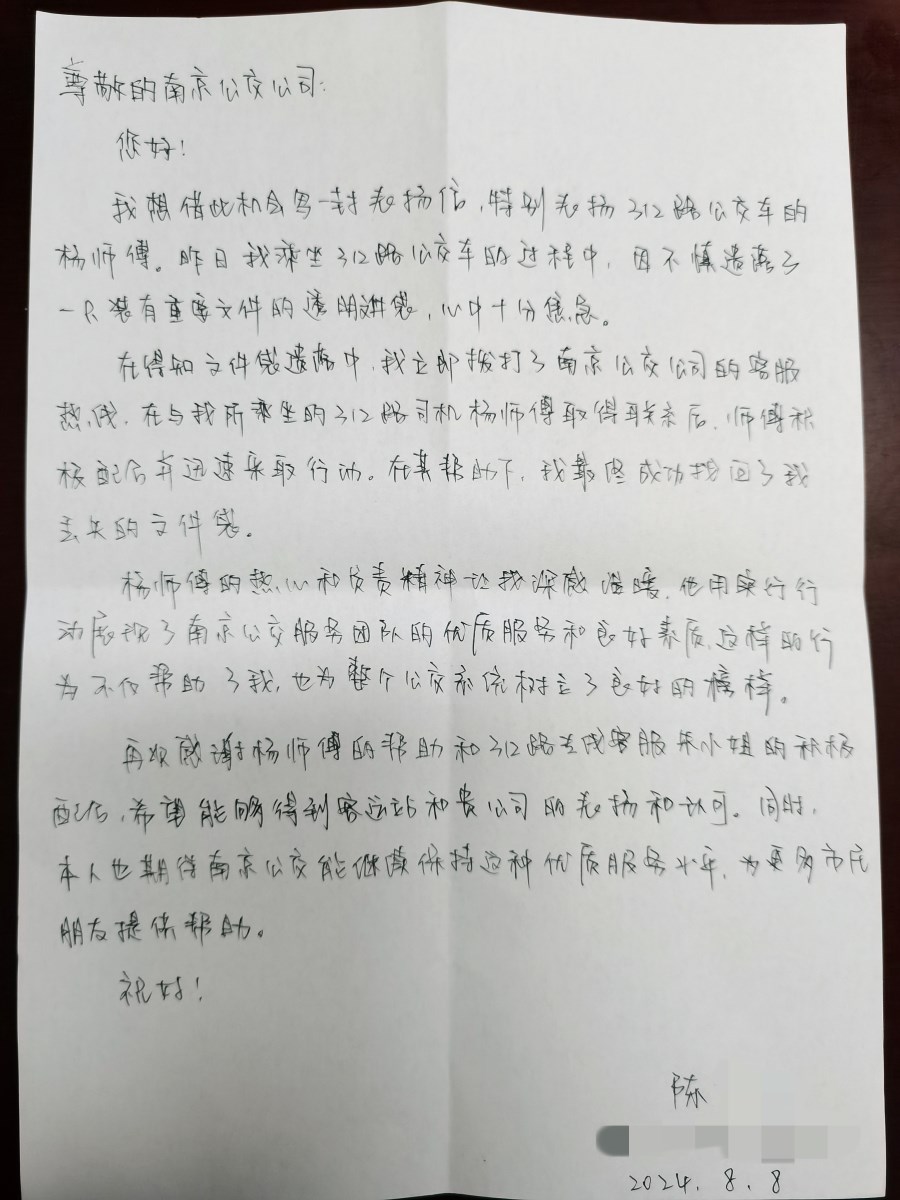 尊敬的南京公交公司:
您好!
我想借此机会写一封表扬信,特别表扬312路公交车的
杨师傅。昨日我乘坐312路公交车的过程中,因不慎遗落了
一只装有重要文件的透明文件袋,心中十分焦急。
在得知文件袋遗落中,我立即拨打了南京公交公司的客服
热线,在与我所乘坐的312路司机杨师傅取得联系后,师傅积
极配合并迅速采取行动。在其帮助下,我最终成功找回了我
丢失的文件袋。
杨师傅的热心和负责精神让我深感温暖,他用实行行
动展现了南京公交服务团队的优质服务和良好素质,这样的行
为不仅帮助了我,也为整个公交系统树立了良好的榜样。
再次感谢杨师傅的帮助和312路专线客服朱小姐的积极
配合,希望能够得到客运站和贵公司的表扬和认可。同时,
本人也期待南京公交能继续保持这种优质服务水平,为更多市民
朋友提供帮助。
祝好!
陈
2024.8.8